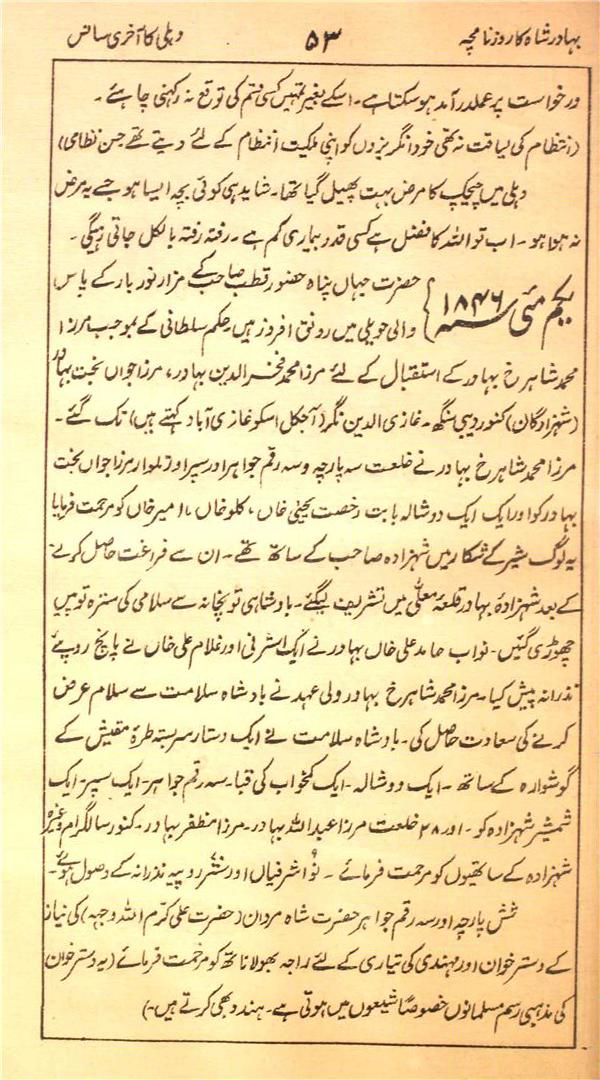 بہادر شاہ کا روزنامچہ ۵۳ دہلی کا آخری سانس
درخواست پر عملدرآمد ہو سکتا ہے۔ اسکے بغیر تمہیں کسی قسم کی توقع نہ رکھنی چاہئے۔
(انتظام کی لیاقت نہ تھی خود انگریزوں کو اپنی ملکیت انتظام کے لئے دیتے تھے حسن نظامی)
دہلی میں چیچک کا مرض بہت پھیل گیا تھا۔ شاید ہی کوئی بچہ ایسا ہو جسے یہ مرض
نہ ہوا ہو۔ اب تو اللہ کا فضل ہے کسی قدر بیماری کم ہے۔ رفتہ رفتہ بالکل جاتی رہیگی۔
یکم مئی ۱۸۴۶ سنہ } حضرت جہاں پناہ حضور قطب صاحب کے مزار نور بار کے پاس
والی حویلی میں رونق افروز ہیں۔ حکم سلطانی کے بموجب مرزا
محمد شاہرخ بہادر کے استقبال کے لئے مرزا محمد فخر الدین بہادر، مرزا جواں بخت بہادر
(شہزادگان) کنور دیبی سنگھ۔ غازی الدین نگر (آجکل اسکو غازی آباد کہتے ہیں) تک گئے۔
مرزا محمد شاہرخ بہادر نے خلعت سہ پارچہ و سہ رقم جواہر اور سپر اور تلوار مرزا جواں بخت
بہادر کو اور ایک ایک دوشالہ بابت رخصت یحییٰ خاں، کلو خاں، امیر خاں کو مرحمت فرمایا
یہ لوگ شیر کے شکار میں شہزادہ صاحب کے ساتھ تھے۔ ان سے فراغت حاصل کرنے
کے بعد شہزادہ بہادر قلعہ معلّٰی میں تشریف لیگئے۔ بادشاہی توپخانہ سے سلامی کی سترہ توپیں
چھوڑی گئیں۔ نواب حامد علی خاں بہادر نے ایک اشرفی اور غلام علی خاں نے پانچ روپئے
نذرانہ پیش کیا۔ مرزا محمد شاہرخ بہادر ولی عہد نے بادشاہ سلامت سے سلام عرض
کرنے کی سعادت حاصل کی۔ بادشاہ سلامت نے ایک دستار سربستہ طرۂ مقیش کے
گوشوارہ کے ساتھ۔ ایک دوشالہ۔ ایک کمخواب کی قبا۔ سہ رقم جواہر۔ ایک سپر۔ ایک
شمشیر شہزادہ کو۔ اور ۲۸ خلعت مرزا عبداللہ بہادر۔ مرزا مظفر بہادر۔ کنور سالگرام وغیرہ
شہزادہ کے ساتھیوں کو مرحمت فرمائے۔ نو اشرفیاں اور ستر روپیہ نذرانہ کے وصول ہوئے۔
شش پارچہ اور سہ رقم جواہر حضرت شاہ مردان (حضرت علی کرم اللہ وجہہ) کی نیاز
کے دسترخوان اور مہندی کی تیاری کے لئے راجہ بھولا ناتھ کو مرحمت فرمائے (یہ دسترخوان
کی مذہبی رسم مسلمانوں خصوصاً شیعوں میں ہوتی ہے۔ ہندو بھی کرتے ہیں۔)